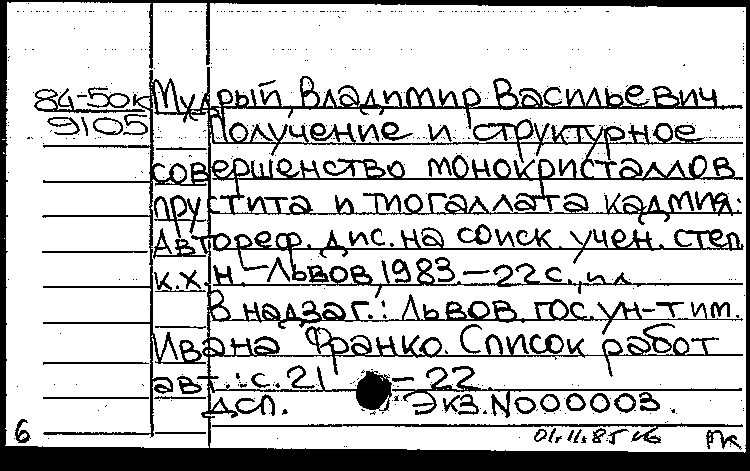 84-50к Мудрый, Владимир Васильевич
9105 Получение и структурное
совершенство монокристаллов
прустита и тиогаллата кадмия:
Автореф. дис. на соиск. учен. степ.
к.х.н. – Львов, 1983. – 22 с., ил.
В надзаг.: Львов. гос. ун-т им.
Ивана Франко. Список работ
авт.: с. 21 – 22
ДСП. Экз. N000003.
6 01.11.85